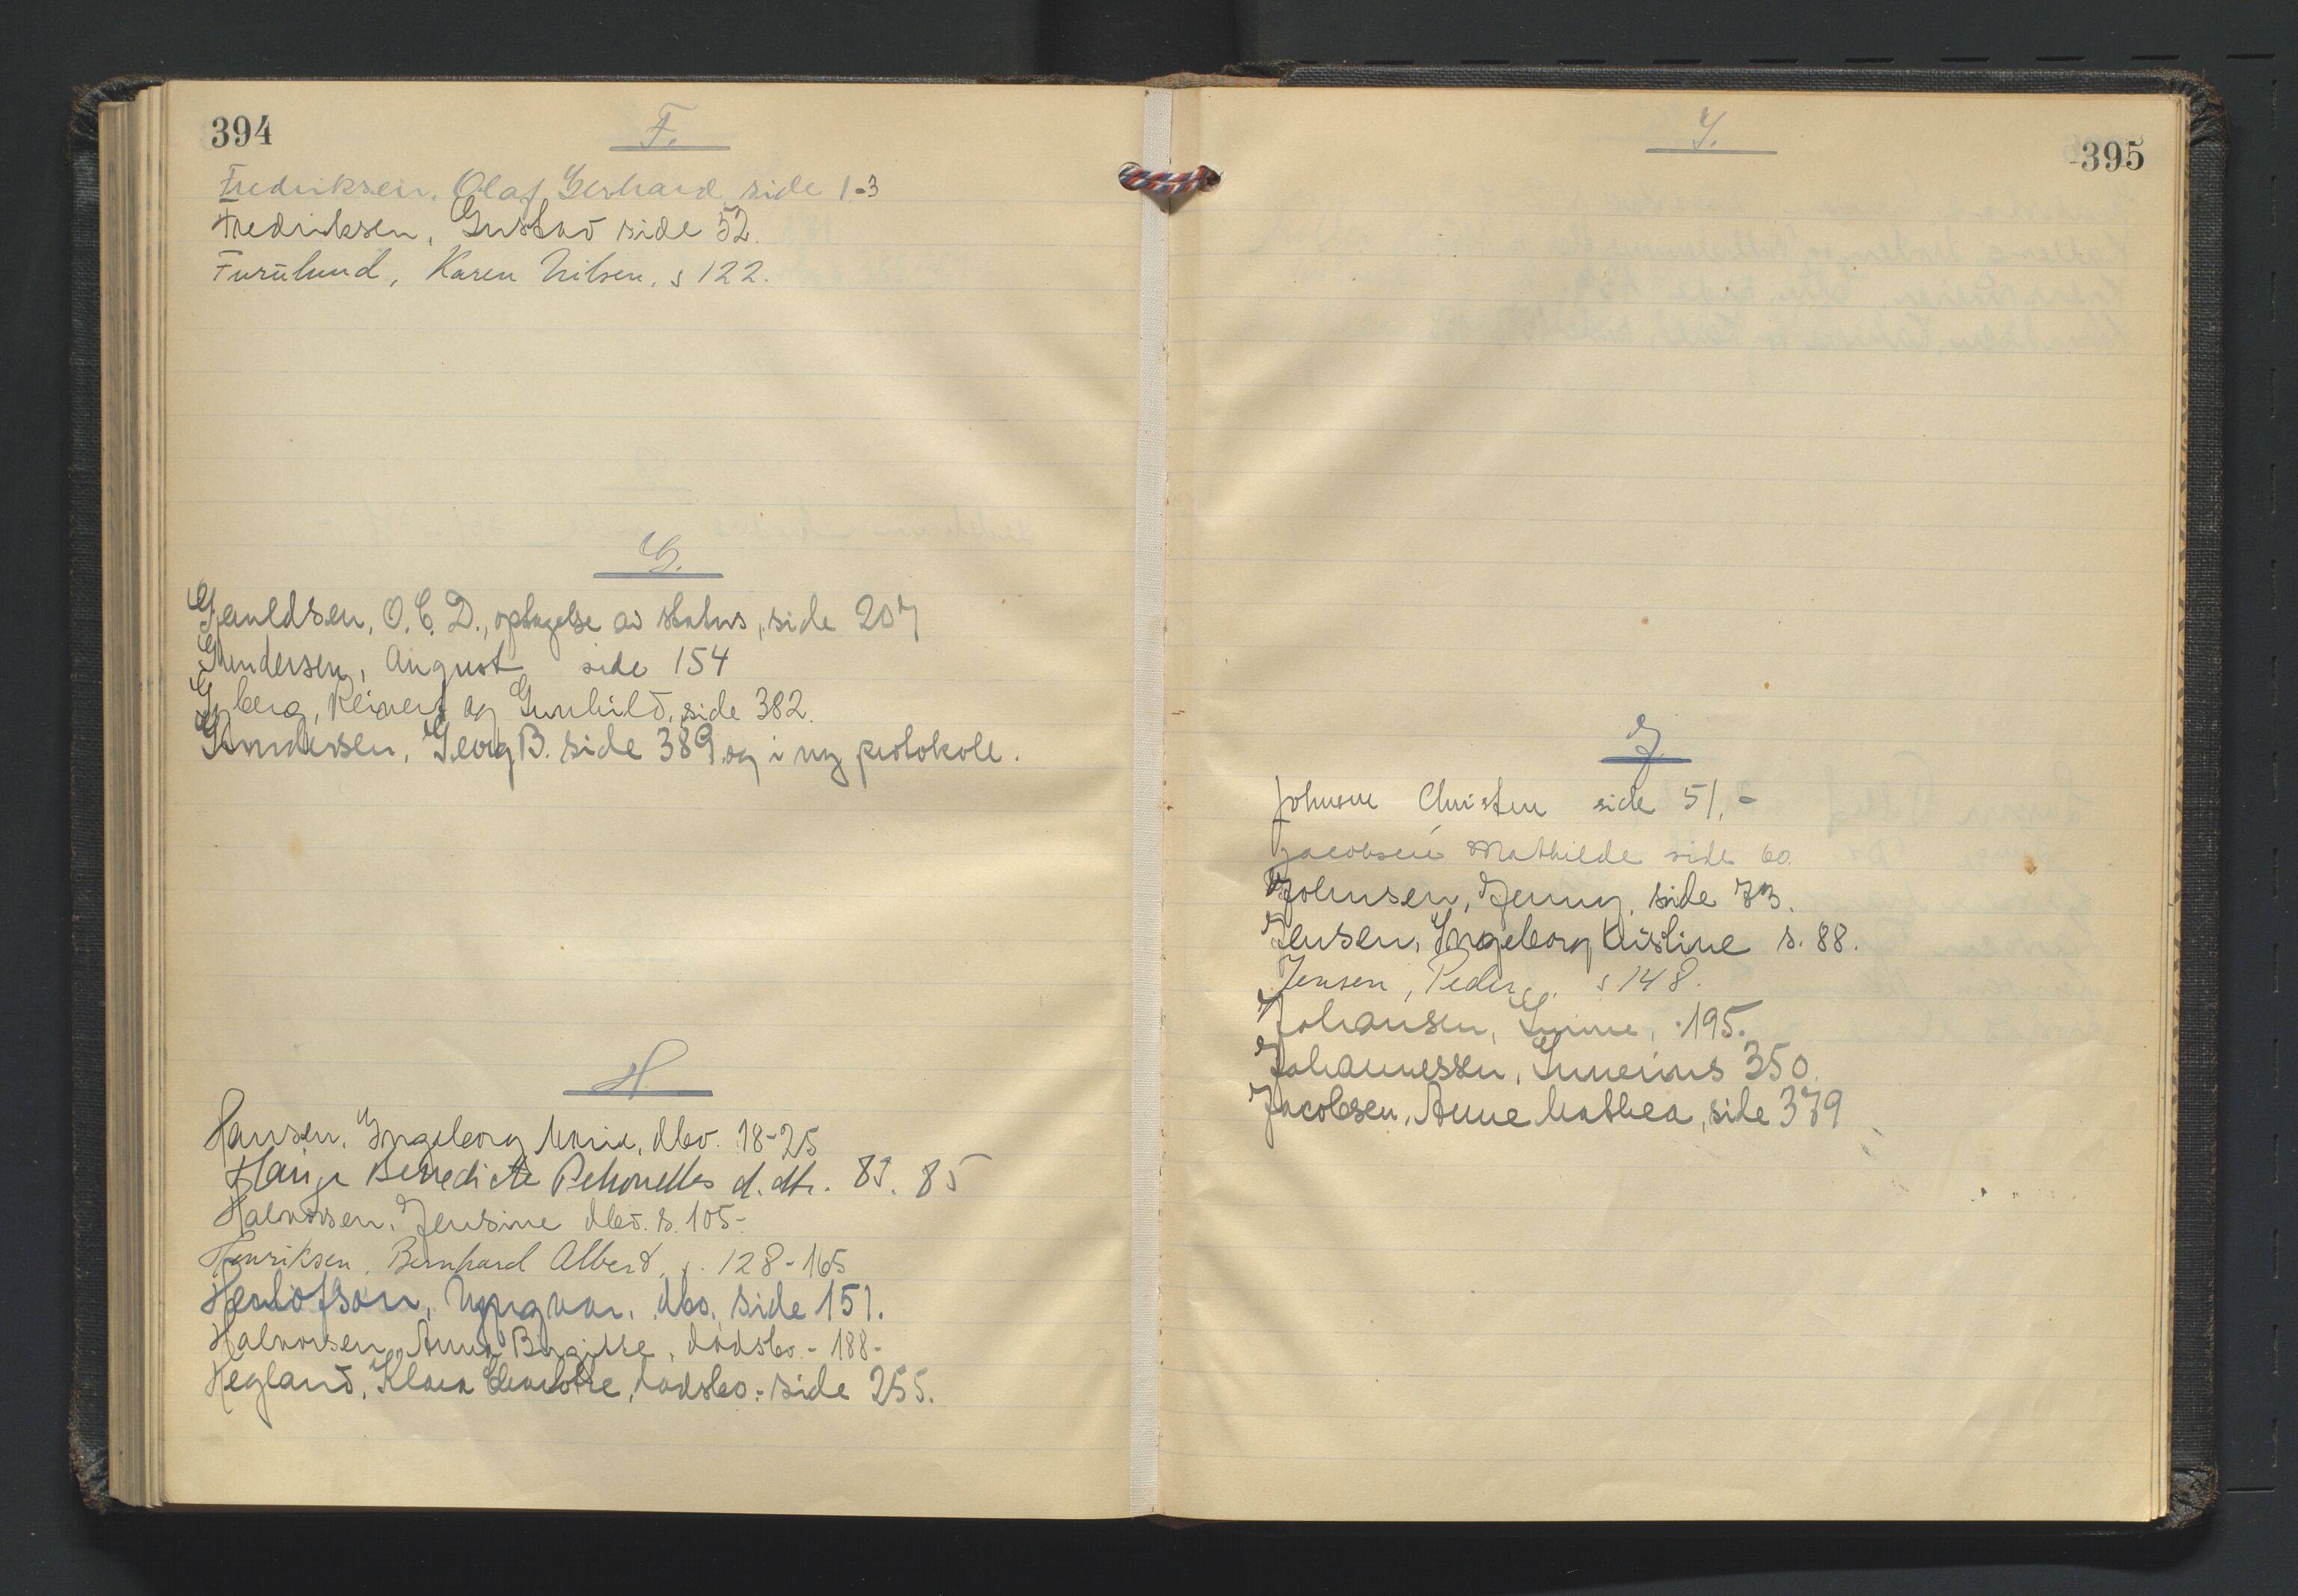 394
F.
Fredriksen, Olaf Gerhard side 1-3
Fredriksen, Gustav side 52.
Furulund, Karen Nilsen, s 122.
G.
Gauldsen, O. C. D., optagelse av status, side 207
Gundersen, August side 154
Gyberg, Reinert og Gunhild, side 382.
Gundersen, Georg B. side 389 og i ny protokoll.
H.
Hansen, Ingeborg Marie, dbo. 18-25
Benedicte Petronelles d. 83. 85
Halvorsen, Jensine dbo. s. 105-
Henriksen, Bernhard Albert, s. 128-165
Herlofson, Yngvar, dbo, side 151.
Halvorsen, Anna Birgitte, dødsbo - 188-
Hegland, Klara Charlotte, dødsbo - side 255.
395
I.
J.
Johnsen Christen side 51.-
Jacobsen Mathilde side 60.
Johnsen, Jenny, side 73.
Jensen, Ingeborg Kristine s. 88.
Jensen, Peder, s 148.
Johansen, 195.
Johannessen, 350.
Jacobsen, Anne Mathea, side 379